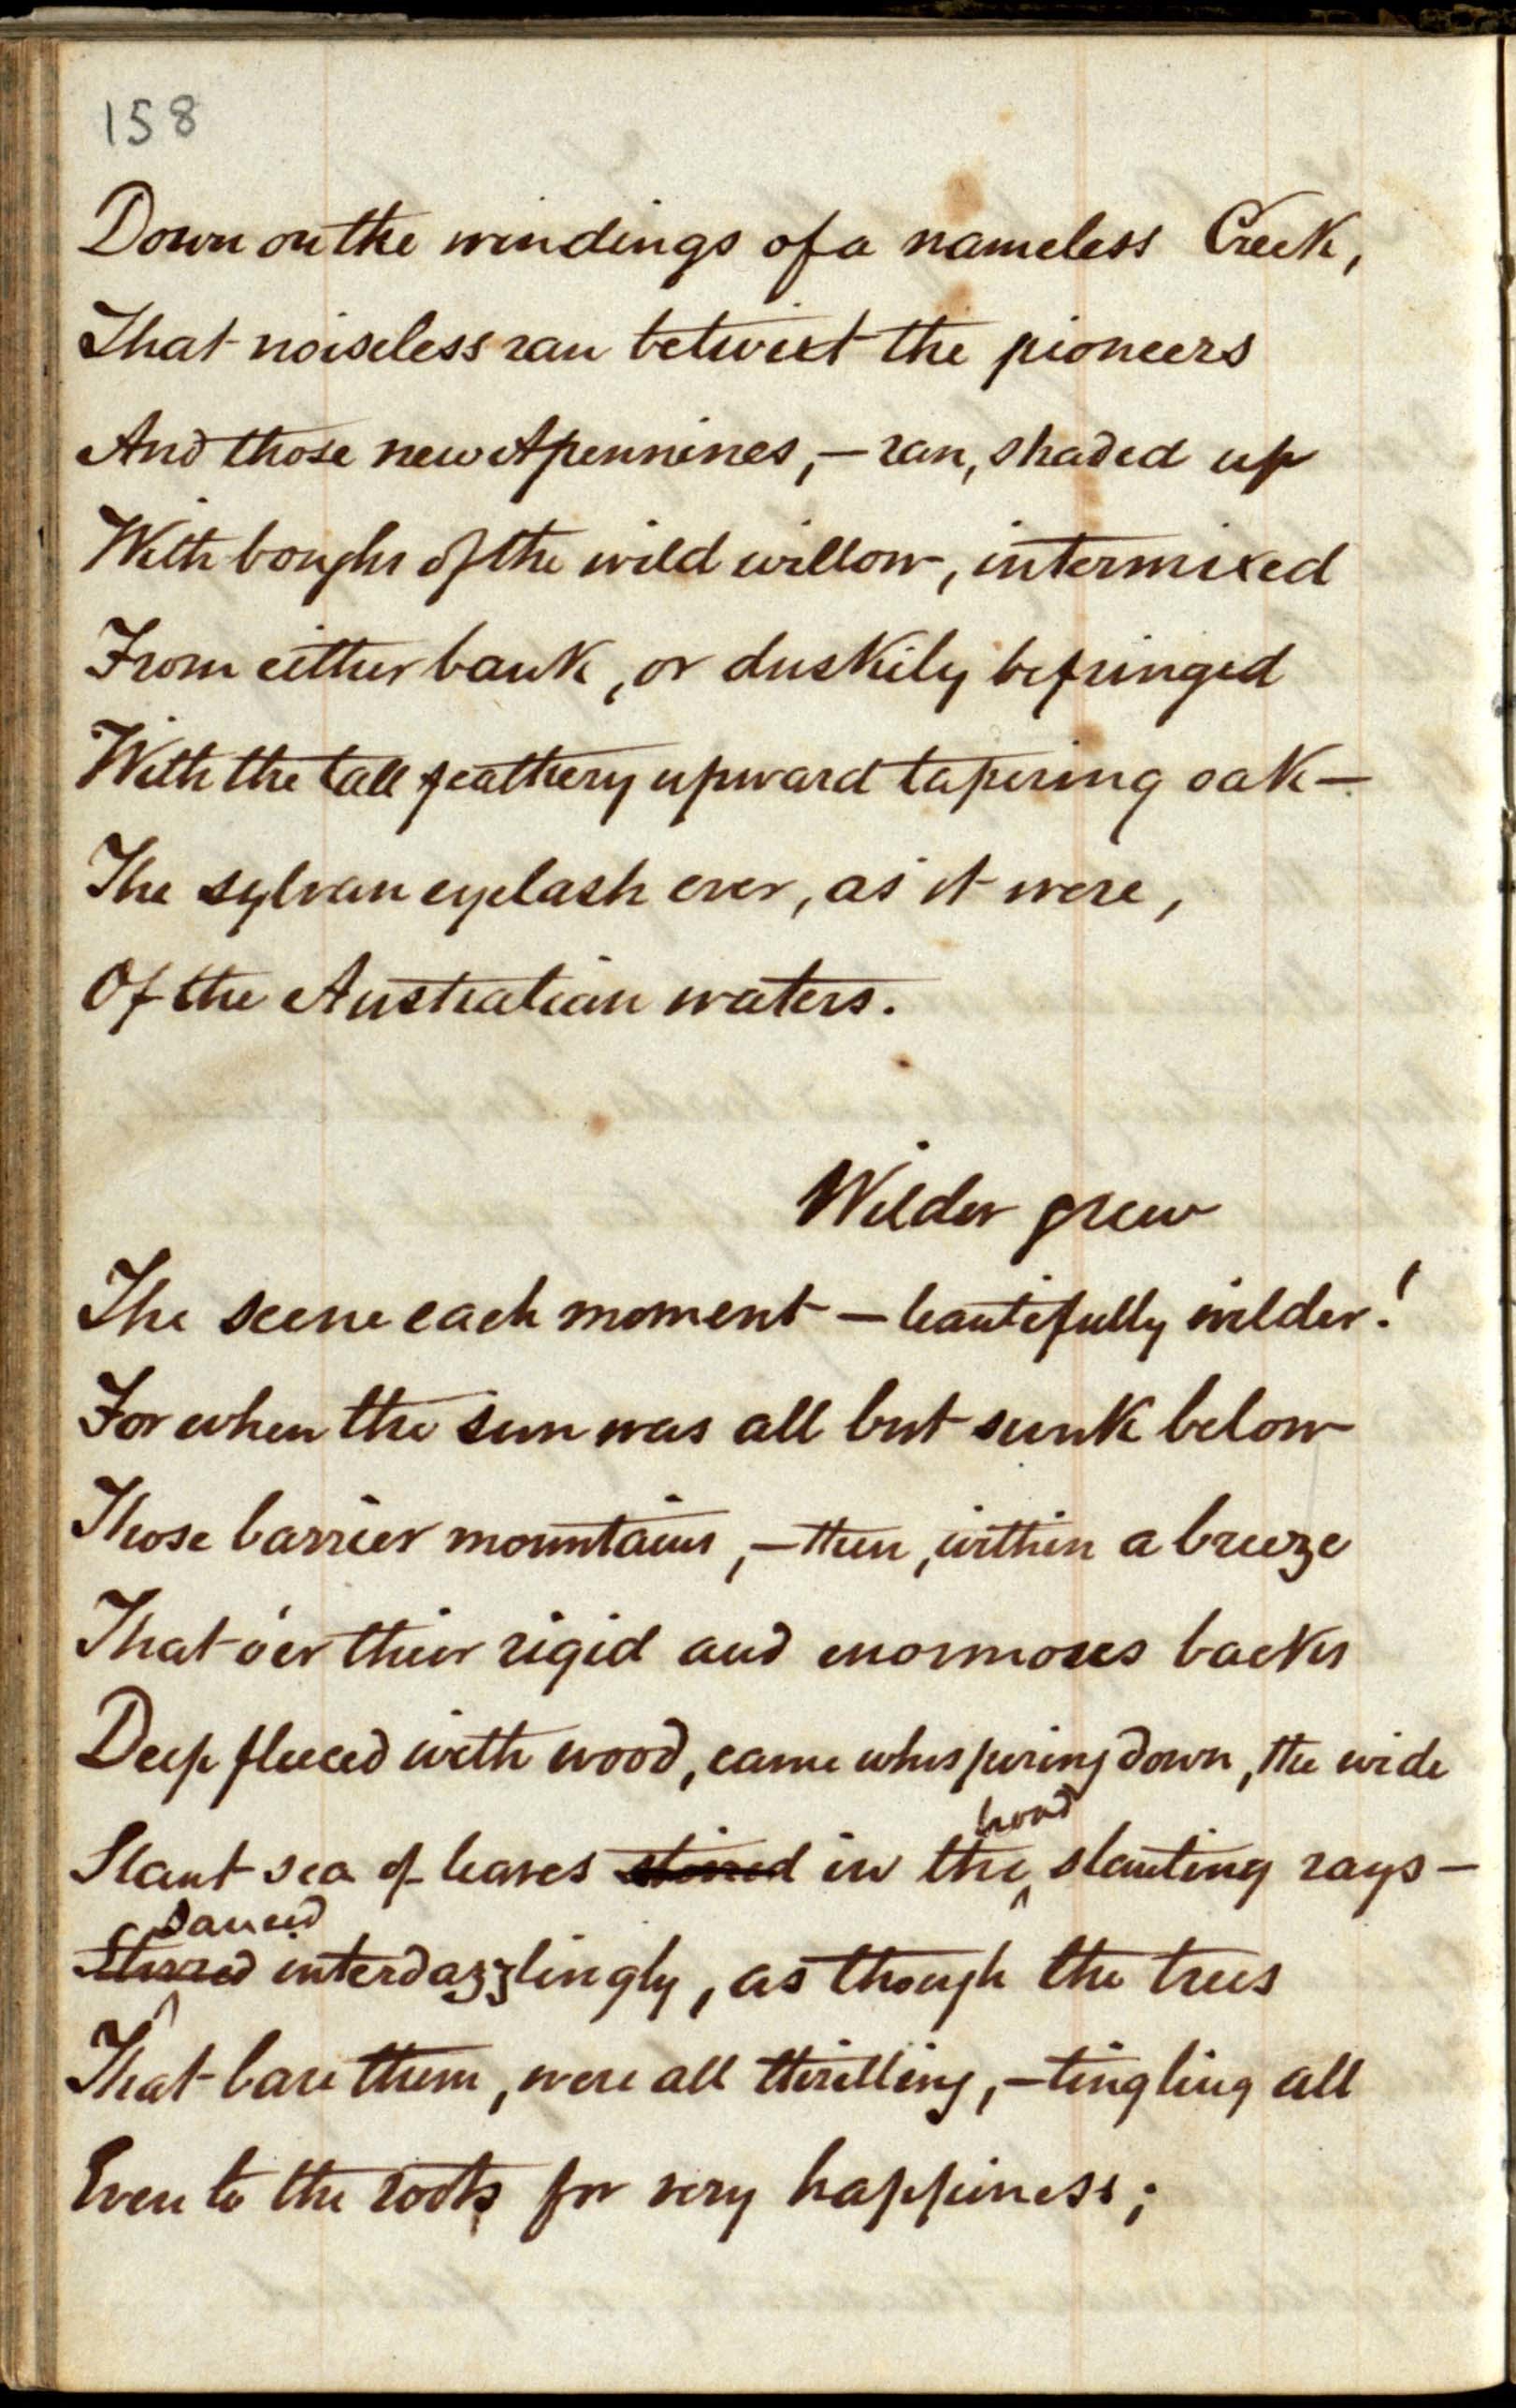 158
Down on the windings of a nameless Creek,
That noiseless ran betwixt the pioneers
And those new Apennines,—ran, shaded up
With boughs of the wild willow, intermixed
From either bank, or duskily befringed
With the tall feathery upward tapering oak—
The sylvan eyelash ever, as it were,
Of the Australian waters.
Wilder grew
The scene each moment—beautifully wilder!
For when the sun was all but sunk below
Those barrier mountains,—then, within a breeze
That o'er their rigid and enormous backs
Deep fleeced with wood, came whispering down, the wide
broad
Slant sea of leaves stirred in the slanting rays—
Danced
Stirred interdazzlingly, as though the trees
That bare them, were all thrilling,—tingling all
Even to the roots for very happiness;